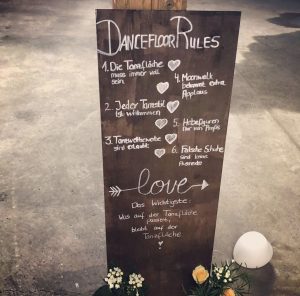 DANCEFLOOR RULES
1. Die Tanzfläche
muss immer voll
sein
2. Jeder Tanzstil
ist willkommen
3. Tanzwettbewerbe
sind erlaubt
4. Moonwalk
bekommt extra
Applaus
5. Hebefiguren
nur mit
6. Falsche Schuhe
sind keine
Ausrede
love
Das Wichtigste:
Was auf der Tanzfläche
passiert,
bleibt auf der
Tanzfläche